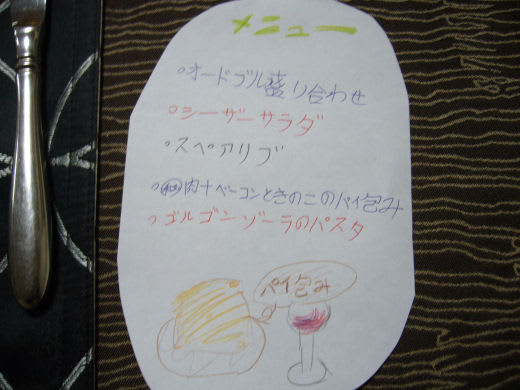 メニュー
オードブル盛り合わせ
シーザーサラダ
スペアリブ
㊙肉+ベーコンときのこのパイ包み
ゴルゴンゾーラのパスタ
パイ包み